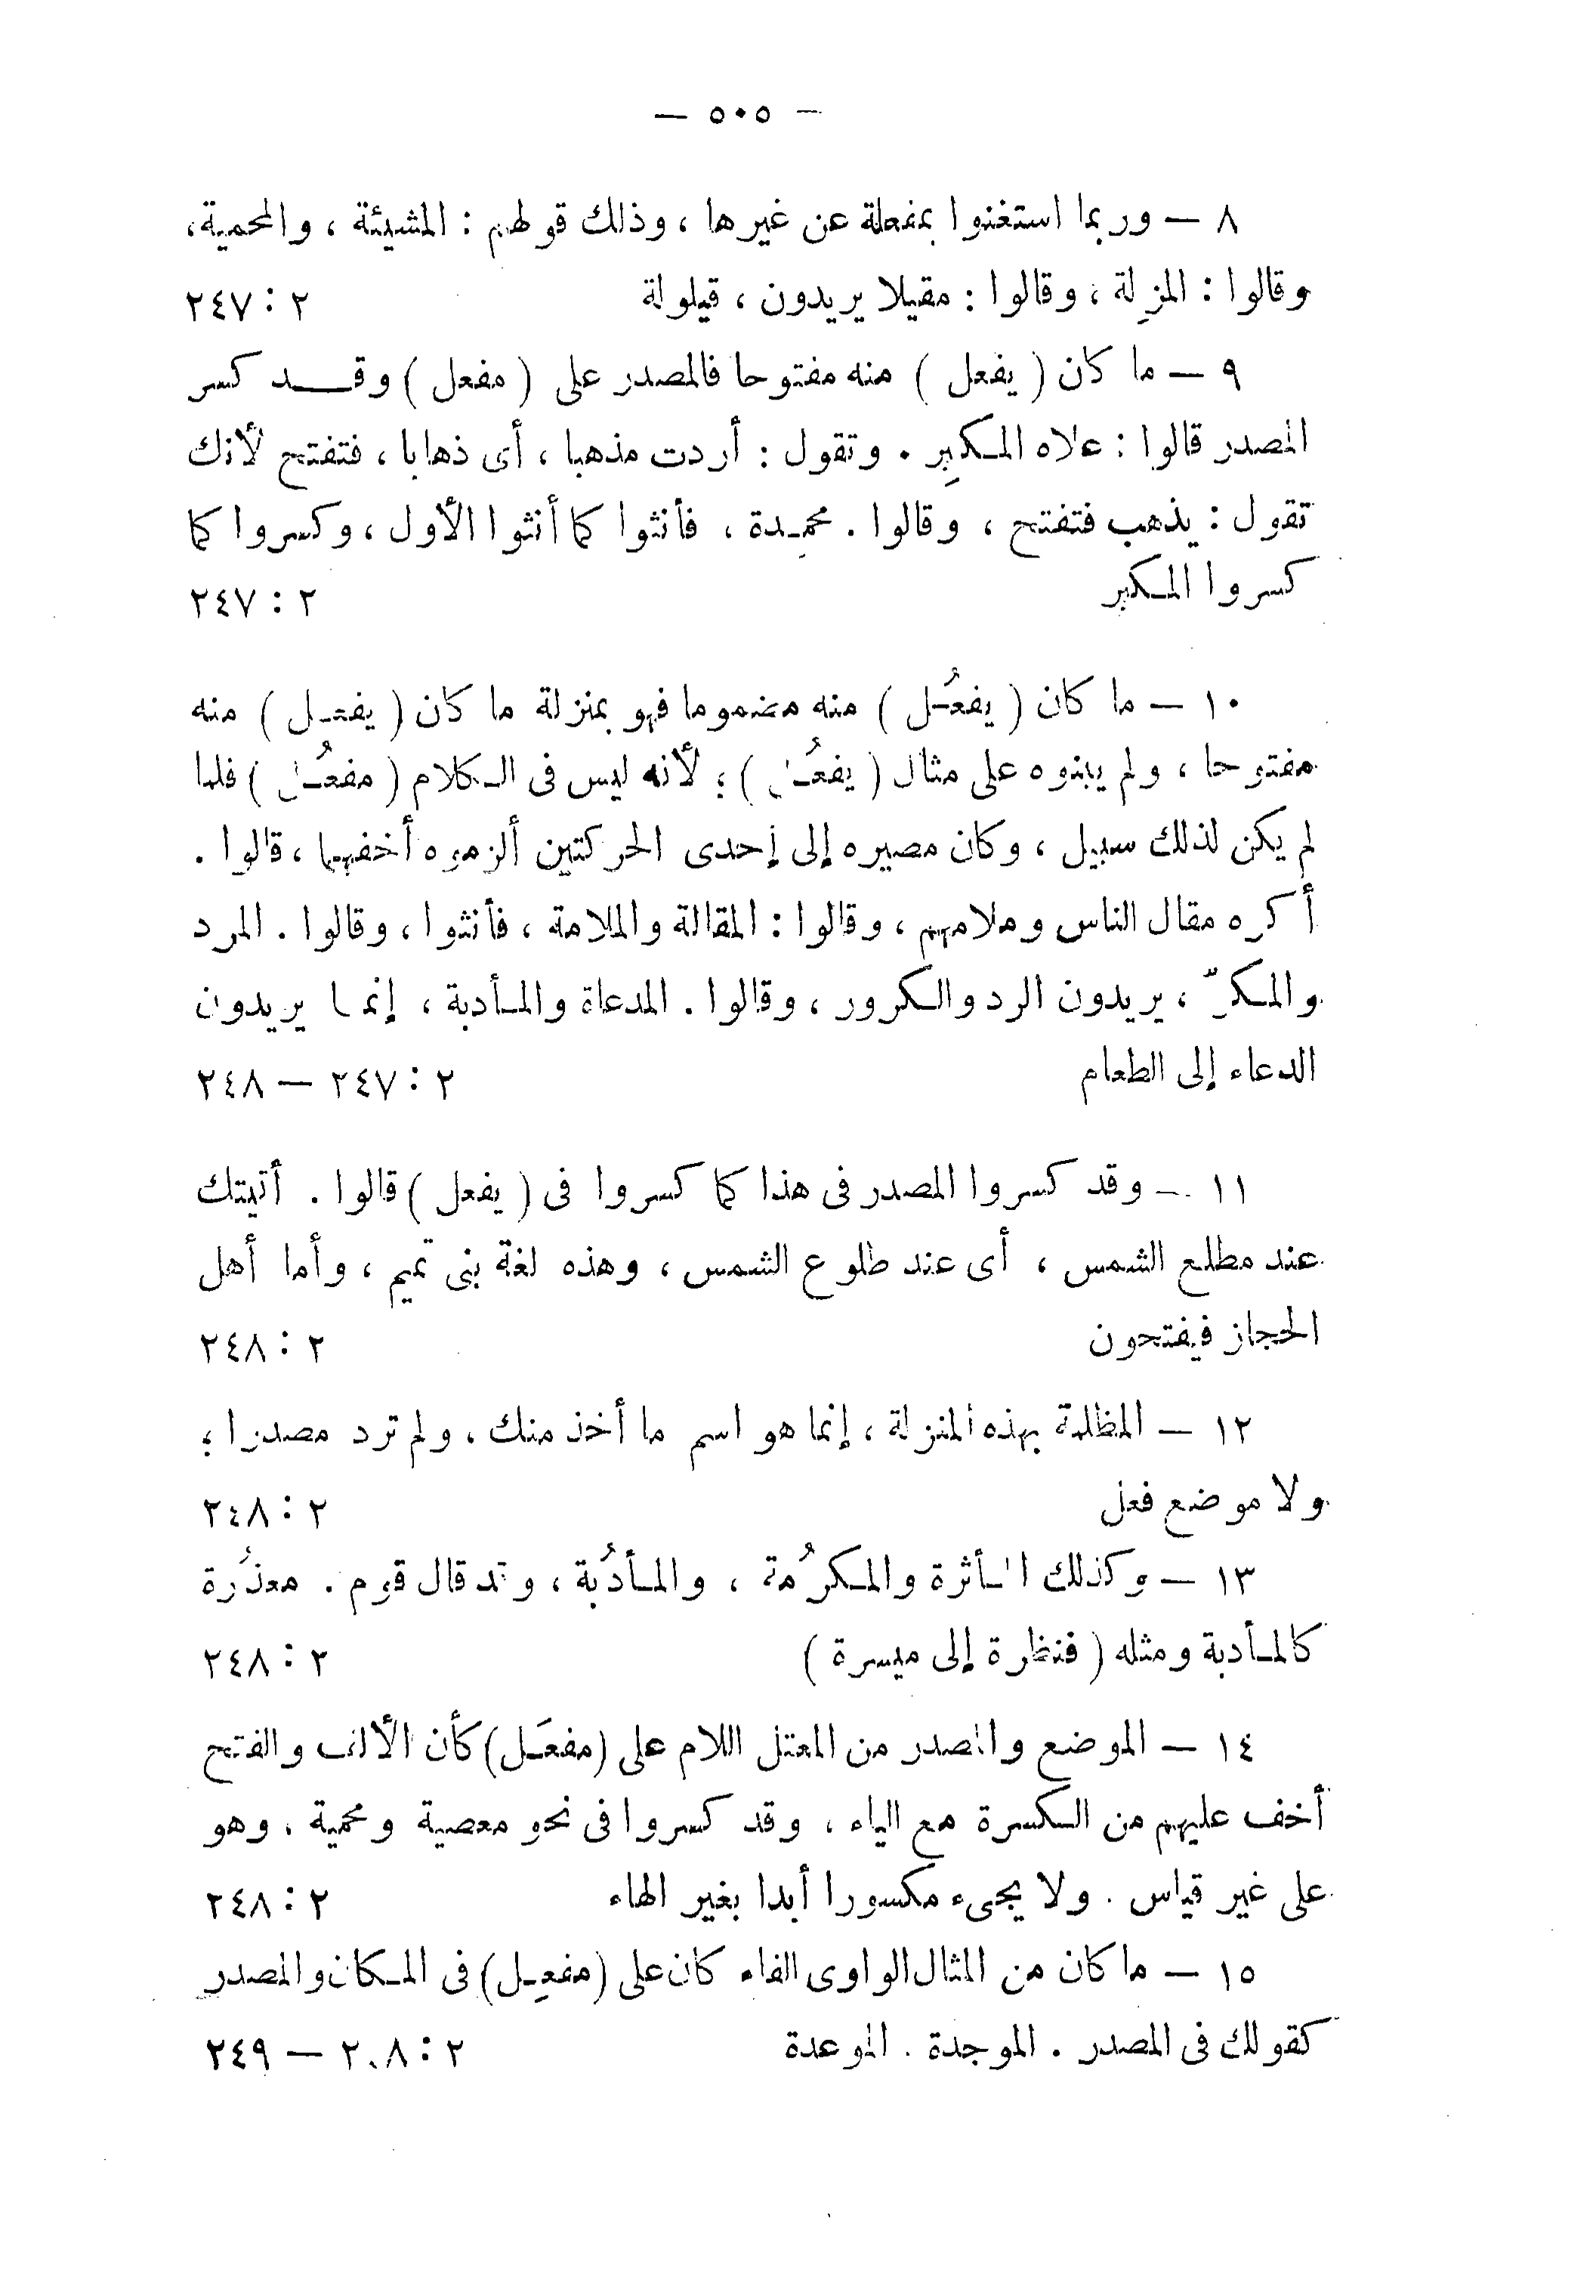 — ٥٠٥ —
٨ — وربما استغنوا بمفعلة عن غيرها ، وذلك قولهم : المشيئة ، والمحمية،
وقالوا : المزِلة ، وقالوا : مقيلا يريدون ، قيلولة ٢ : ٢٤٧
٩ — ما كان ( يفعل ) منه مفتوحا فالمصدر على ( مفعل ) وقـــد كسر
المصدر قالوا : علاه المـكبِر . وتقول : أردت مذهبا ، أى ذهابا ، فتفتح لأنك
تقول : يذهب فتفتح ، وقالوا . محمِـدة ، فأنثوا كما أنثوا الأول ، وكسروا كما
كسروا المـكبر ٢ : ٢٤٧
١٠ — ما كان ( يفعُـل ) منه مضموما فهو بمنزلة ما كان ( يفعـل ) منه
مفتوحا ، ولم يبنوه على مثال ( يفعُـل ) ؛ لأنه ليس فى الـكلام ( مفعُـل ) فلما
لم يكن لذلك سبيل ، وكان مصيره إلى إحدى الحركتين ألزموه أخفهما ، قالوا .
أكره مقال الناس وملامهم ، وقالوا : المقالة والملامة ، فأنثوا ، وقالوا . المرد
والمـكرّ ، يريدون الرد والـكرور ، وقالوا . المدعاة والمـأدبة ، إنما يريدون
الدعاء إلى الطعام ٢ : ٢٤٧ — ٢٤٨
١١ — وقد كسروا المصدر فى هذا كما كسروا فى ( يفعل ) قالوا . أتيتك
عند مطلع الشمس ، أى عند طلوع الشمس ، وهذه لغة بنى تميم ، وأما أهل
الحجاز فيفتحون ٢ : ٢٤٨
١٢ — المظلمة بهذه المنزلة ، إنما هو اسم ما أخذ منك ، ولم ترد مصدرا ؛
ولا موضع فعل ٢ : ٢٤٨
١٣ — وكذلك المـأثرة والمـكرُمة ، والمـأدُبة ، وقد قال قوم . معذُرة
كالمـأدبة ومثله ( فنظرة إلى ميسرة ) ٢ : ٢٤٨
١٤ — الموضع والمصدر من المعتل اللام على (مفعَـل) كأن الألف والفتح
أخف عليهم من الـكسرة مع الياء ، وقد كسروا فى نحو معصية ومحمية ، وهو
على غير قياس . ولا يجىء مكسورا أبدا بغير الهاء ٢ : ٢٤٨
١٥ — ما كان من المثال الواوى الفاء كان على (مفعِـل) فى المـكان والمصدر
كقولك فى المصدر . الموجدة . الموعدة ٢ : ٢٠٨ — ٢٤٩